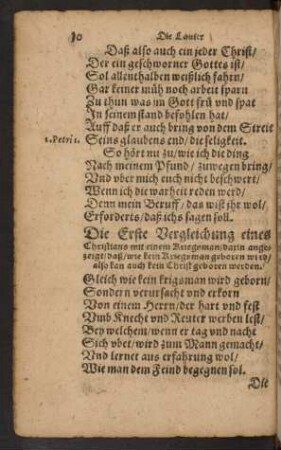 30 Die Lanier
Daß also auch ein jeder Christ/
Der ein geschworner Gottes ist/
Sol allenthalben weißlich fahrn/
Gar keiner müh noch arbeit sparn
Zu thun was im Gott frü vnd spat
In seinem stand befohlen hat/
Auff daß er auch bring von dem Streit
1. Petri 1. Seins glaubens end/die seligkeit.
So hört nu zu/wie ich die ding
Nach meinem Pfund/zuwegen bring/
Vnd vber mich euch nicht beschwert/
Wenn ich die warheit reden werd/
Denn mein Beruff/das wist jhr wol/
Erforderts/daß ichs sagen soll.
Die Erste Vergleichung eines
Christians mit einem Kriegsman/darin ange-
zeigt/daß/wie kein Kriegsman geboren wird/
also kan auch kein Christ geboren werden.
Gleich wie kein krigsman wird geborn/
Sondern verursacht vnd erkorn
Von einem Herrn/der hart vnd fest
Vmb Knecht vnd Reuter werben lest/
Bey welchem/wenn er tag vnd nacht
Sich vbet/wird zum Mann gemacht/
Vnd lernet aus erfahrung wol/
Wie man dem Feind begegnen sol.
Die